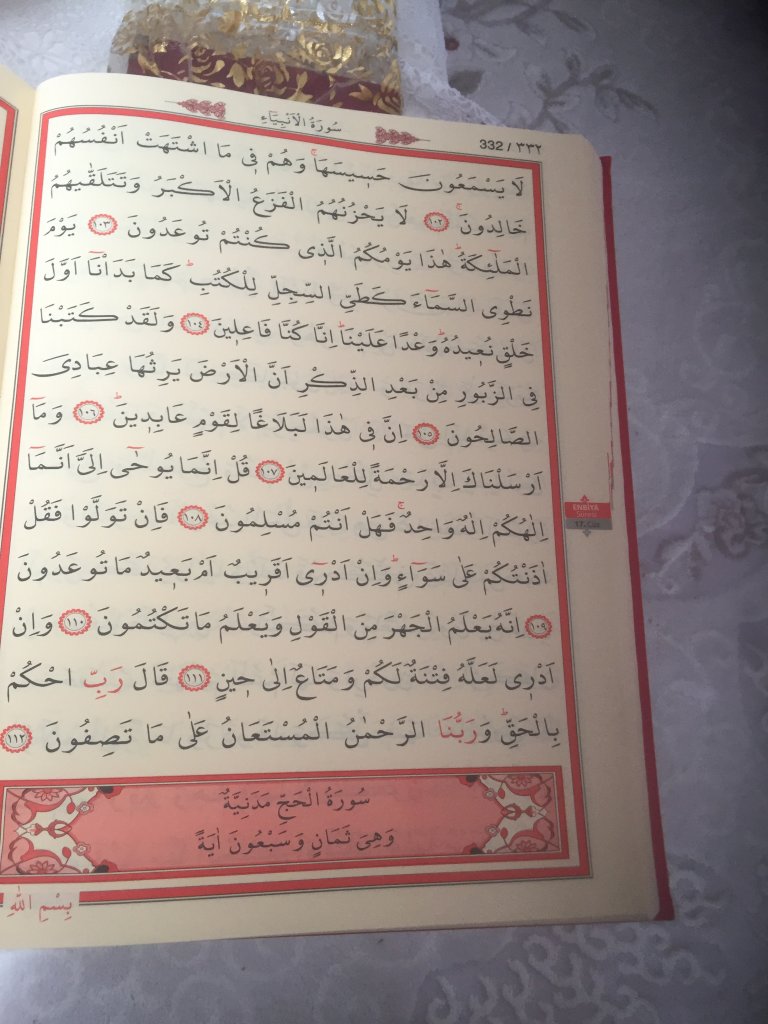 سُورَةُ الْاَنْبِيَاءِ
332 / ٣٣٢
لَا يَسْمَعُونَ حَسٖيسَهَاۚ وَهُمْ فٖي مَا اشْتَهَتْ اَنْفُسُهُمْ
خَالِدُونَۚ ١٠٢ لَا يَحْزُنُهُمُ الْفَزَعُ الْاَكْبَرُ وَتَتَلَقّٰيهُمُ
الْمَلٰٓئِكَةُؕ هٰذَا يَوْمُكُمُ الَّذٖي كُنْتُمْ تُوعَدُونَ ١٠٣ يَوْمَ
نَطْوِي السَّمَٓاءَ كَطَيِّ السِّجِلِّ لِلْكُتُبِؕ كَمَا بَدَاْنَٓا اَوَّلَ
خَلْقٍ نُعٖيدُهُؕ وَعْدًا عَلَيْنَاؕ اِنَّا كُنَّا فَاعِلٖينَ ١٠٤ وَلَقَدْ كَتَبْنَا
فِي الزَّبُورِ مِنْ بَعْدِ الذِّكْرِ اَنَّ الْاَرْضَ يَرِثُهَا عِبَادِيَ
الصَّالِحُونَ ١٠٥ اِنَّ فٖي هٰذَا لَبَلَاغًا لِقَوْمٍ عَابِدٖينَؕ ١٠٦ وَمَٓا
اَرْسَلْنَاكَ اِلَّا رَحْمَةً لِلْعَالَمٖينَ ١٠٧ قُلْ اِنَّمَا يُوحٰٓى اِلَيَّ اَنَّمَٓا
اِلٰهُكُمْ اِلٰهٌ وَاحِدٌۚ فَهَلْ اَنْتُمْ مُسْلِمُونَ ١٠٨ فَاِنْ تَوَلَّوْا فَقُلْ
اٰذَنْتُكُمْ عَلٰى سَوَٓاءٍؕ وَاِنْ اَدْرٖٓي اَقَرٖيبٌ اَمْ بَعٖيدٌ مَا تُوعَدُونَ
١٠٩ اِنَّهُ يَعْلَمُ الْجَهْرَ مِنَ الْقَوْلِ وَيَعْلَمُ مَا تَكْتُمُونَ ١١٠ وَاِنْ
اَدْرٖي لَعَلَّهُ فِتْنَةٌ لَكُمْ وَمَتَاعٌ اِلٰى حٖينٍ ١١١ قَالَ رَبِّ احْكُمْ
بِالْحَقِّؕ وَرَبُّنَا الرَّحْمٰنُ الْمُسْتَعَانُ عَلٰى مَا تَصِفُونَ ١١٢
سُورَةُ الْحَجِّ مَدَنِيَّةٌ
وَهِيَ ثَمَانٍ وَسَبْعُونَ اٰيَةً
بِسْمِ اللّٰهِ
ENBİYÂ
Sûresi
17. Cüz